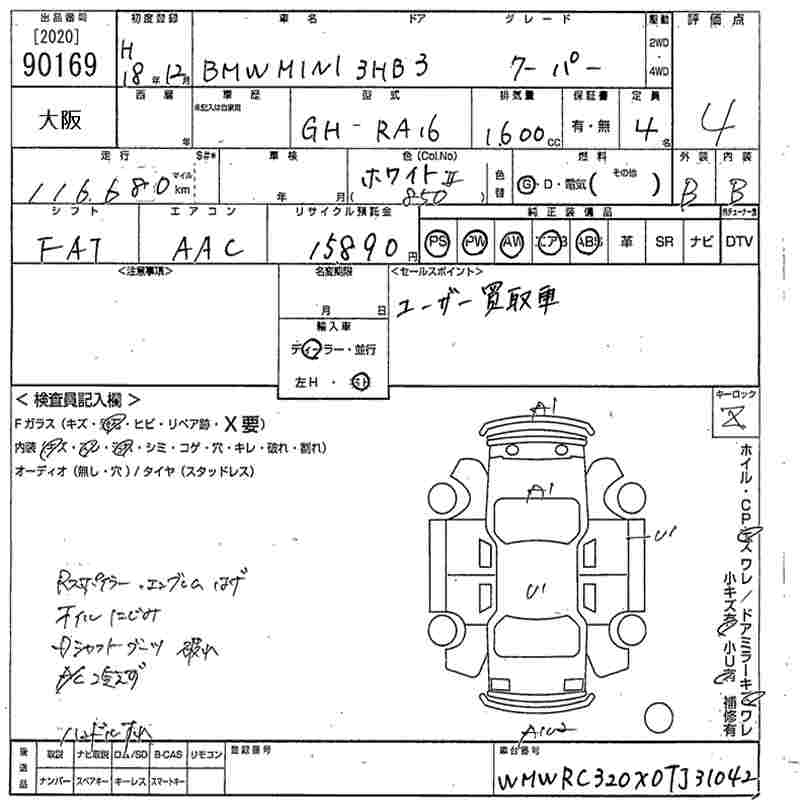 出品番号 初度登録 車名 ドア グレード 駆動 評価点
[2020]
90169
H 18年12月 BMW MINI 3HB 3 クーパー 2WD・4WD 4
大阪 西暦 年 車歴 型式 排気量 保証書 定員
未記入は自家用
GH-RA16 1,600cc 有・無 4名
走行 S#* 車検 色(Col.No) 燃料 外装 内装
116,680 マイル km 年 月 ホワイトII (850) 色替 G・D・電気( その他 ) B B
シフト エアコン リサイクル預託金 純正装備品
FAT AAC 15890円 PS PW AW エアB ABS 革 SR ナビ DTV
<注意事項> 名変期限 <セールスポイント>
月 日
ユーザー買取車
輸入車
ディーラー・並行
左H・
< 検査員記入欄 > キーロック
Fガラス (キズ・・ヒビ・リペア跡・X要)
内装 (キズ・・・シミ・コゲ・穴・キレ・破れ・割れ)
オーディオ (無し・穴) / タイヤ (スタッドレス)
A1
A1
U1
U1
ホイル・CPキズワレ/ドアミラーキズワレ
小キズ有 小U有 補修有
Rスポイラー・エンブレムはげ
オイルにじみ
Dシャフトブーツ 破れ
A/C 冷えず
ハンドルすれ
後送品 取説 ナビ取説 ロム/SD B-CAS リモコン 登録番号 車台番号
ナンバー スペアキー キーレス スマートキー
WMWRC320X0TJ31042